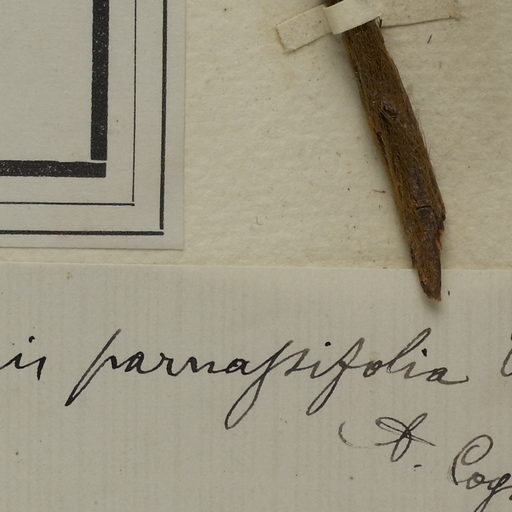 is parnassifolia
A. Cog